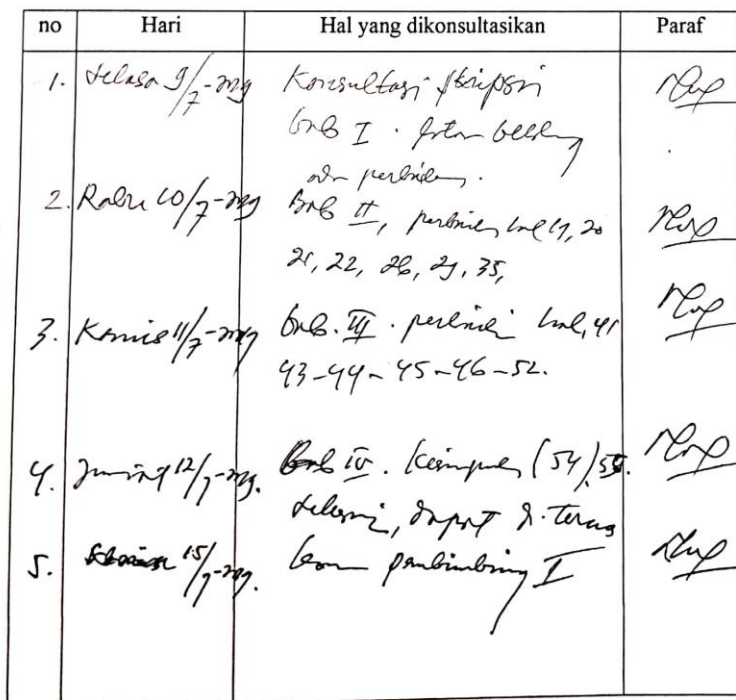 no Hari Hal yang dikonsultasikan Paraf
1. Selasa 9/7-2019 Konsultasi skripsi
bab I. latar belakang
perbaiki.
2. Rabu 10/7-2019 Bab II, perbaiki hal 19, 20
21, 22, 26, 29, 35,
3. Kamis 11/7-2019 bab. III. perbaiki hal, 41
43-44-45-46-52.
4. Jum'at 12/7-2019. Bab IV. Kesimpulan (54), 55.
selesai, dapat di terus
5. 15/7-2019. pembimbing I